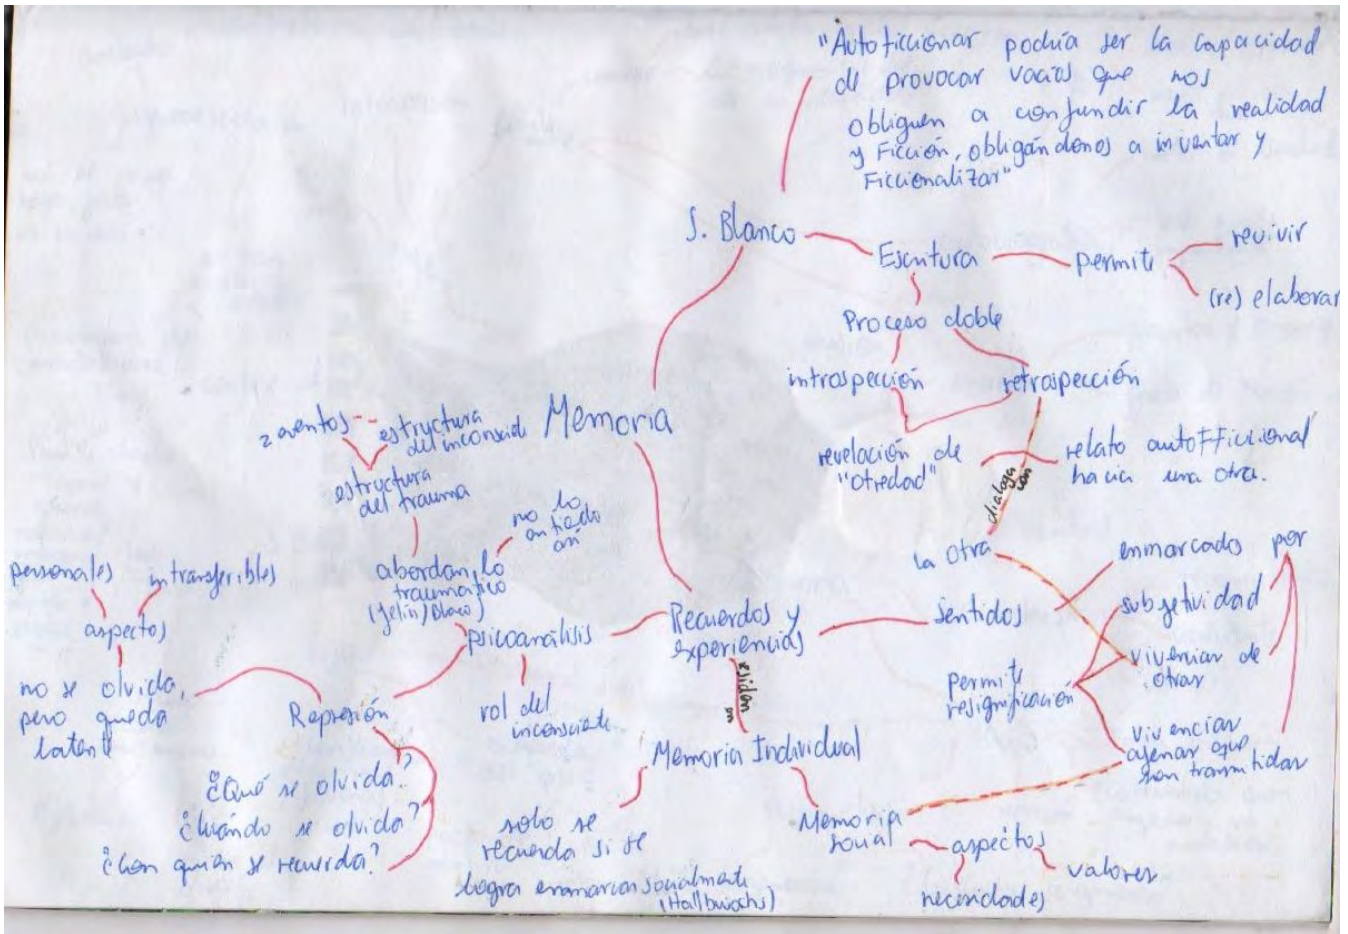 "Autoficcionar podría ser la capacidad
de provocar vacíos que nos
obliguen a confundir la realidad
y Ficción, obligándonos a inventar y
Ficcionalizar"
S. Blanco
Escritura
permite
revivir
(re) elaborar
Proceso doble
introspección
retrospección
revelación de
"otredad"
relato autofficcional
hacia una otra.
dialoga
con
la otra
Memoria
2 eventos
estructura
del inconsciente
estructura
del trauma
no lo
abordan lo
traumático
(Jelin/Blanco)
psicoanálisis
rol del
inconsciente
personales
intransferibles
aspectos
no se olvida,
pero queda
latente
Represión
¿Qué se olvida?
¿Cuándo se olvida?
¿Con quién se recuerda?
Recuerdos y
experiencias
residen
en
Memoria Individual
solo se
recuerda si se
logra enmarcar socialmente
(Hallbwachs)
Memoria
social
aspectos
valores
necesidades
sentidos
enmarcados por
subjetividad
permite
resignificación
vivencias de
otras
vivencias
ajenas que
son transmitidas